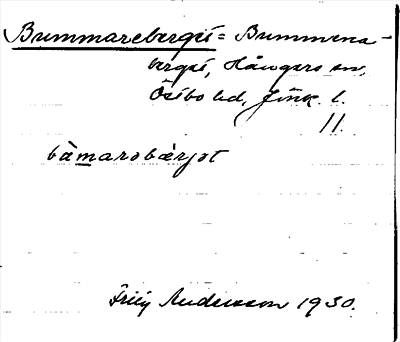 Bummareberget = Bummena-
berget, Hångers sn,
Östbo hd, Jönk. l.
11.
bàmarəbærjət
Andersson 1930.